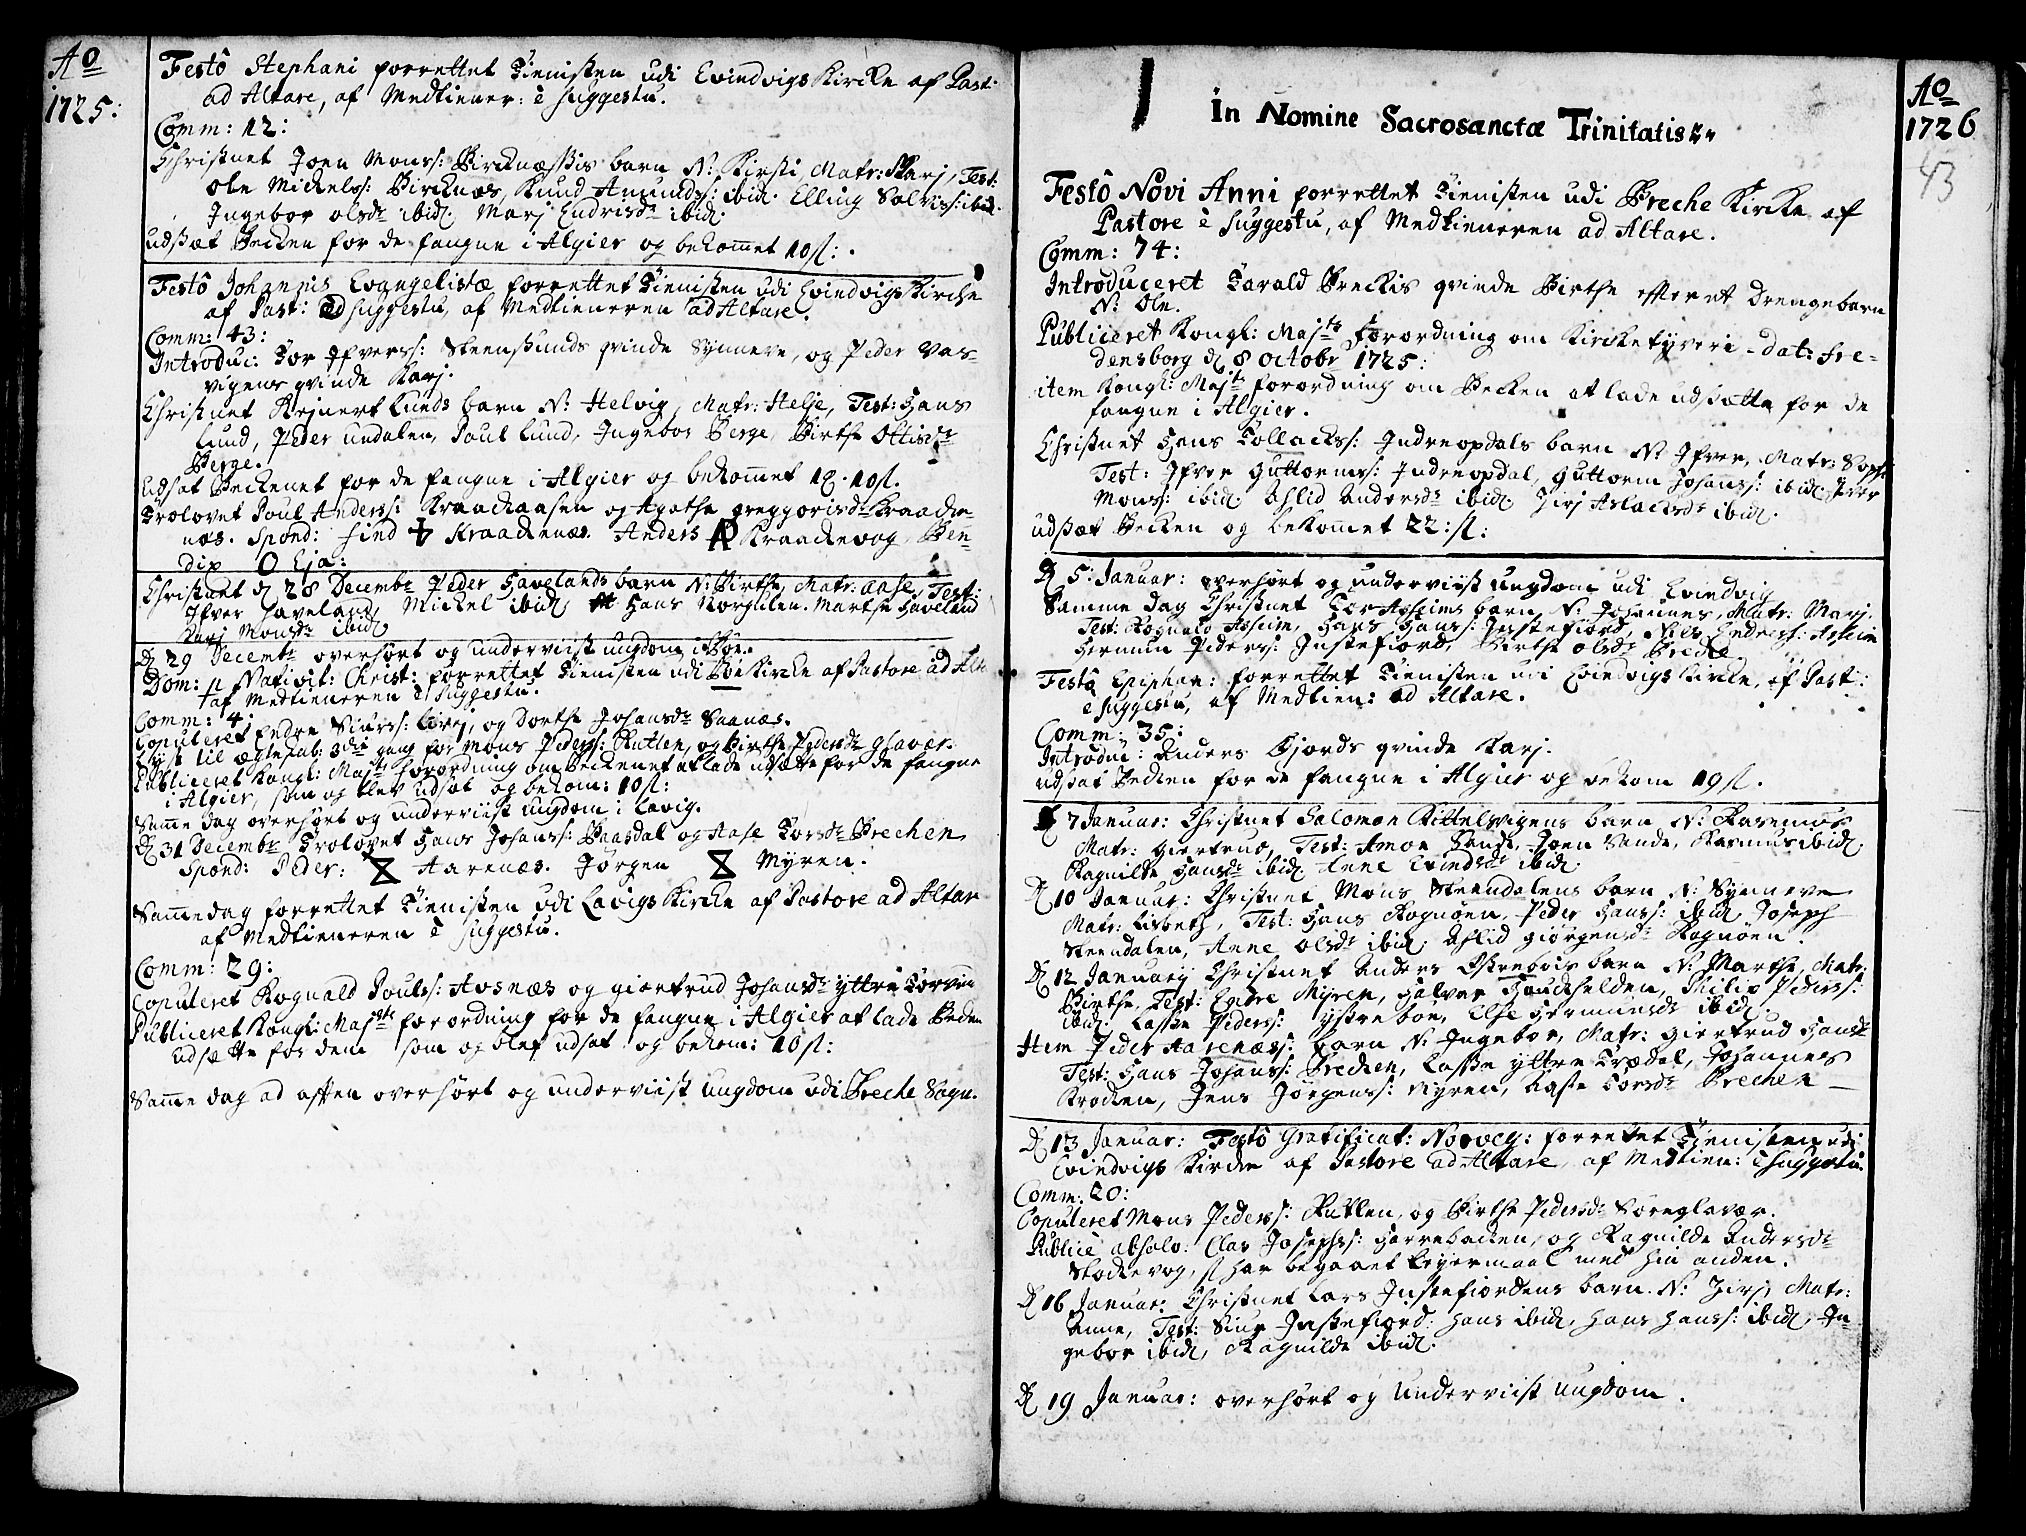 Ao
1725:
Festô Stephani forrettet Tienisten udi Evindvigs Kircke af Past:
ad Altare, af Medtiener: è suggestu.
Comm: 12:
Christnet Joen Monss: Bircknæssis barn N: Kirsti, Matr: Marj, Test:
Ole Mickelss: Bircknæs, Knud Amundss: ibid. Elling Salviss: ibid.
Ingebor Olsdr ibid. Marj Endrisdr ibid.
udssæt Becken for de fangne i Algier og bekommet 10 sl:
Festô Johannis Evangelistæ forrettet Tienisten udi Evindvigs Kirche
af Past: è suggestu, af Medtieneren ad Altare.
Comm: 43:
Introduc: Tor Ifverss: Steensunds qvinde Synneve, og Peder Vas-
vigens qvinde Karj.
Christnet Rejnert Lunds barn N: Helvig, Matr: Helje, Test: Hans
Lund, Peder undalen, Poul Lund, Ingebor Berge, Birthe Ottisdr
Berge.
Udsat Beckenet for de fangne i Algier og bekommet 1 . 10 sl.
Trolovet Poul Anderss: Kraackaasen og Agathe greggorisdr Kraacke
næs. Spond: find Kraackenæs. Anders Kraackevog, Ben-
dix O Eja:
Christnet d 28 Decembr Peder Havelands barn N: Birthe, Matr: Aase, Test:
Ifver Haveland, Mickel ibid, Hans Norgulen. Marthe Haveland
Karj Monsdr ibid.
d 29 Decembr overhørt og underviist ungdom i Bøe.
Dom: p Nativit: Christ: forrettet Tienisten udi Bøe Kircke af Pastore ad Alta
af Medtieneren è suggestu.
Comm: 4:
Copuleret Endre Siurss: Lirej, og Dorthe Johansdr Saanæs.
Lyst til ægteskab 3die gang for Mons Pederss: Rutlen, og Birthe Pedersdr glavær.
Publiceret Kongl: Majts forordning om Beckenet at lade udsætte for de fangne
i Algier, som og blev udsat og bekom: 10 sl:
Samme dag overhørt og underviist ungdom i Lavig.
d 31 Decembr Trolovet Hans Johanss: Baasdal og Aase Torsdr Brechen
Spond: Peder: Aarenæs. Jørgen Myren.
Samme dag forrettet Tienisten udi Lavigs Kircke af Pastore ad Altar
af Medtieneren è suggestu.
Comm: 29:
Copuleret Rognald Poulss: Avsnæs og giertrud Johansdr yttre Torvun
Publiceret Kongl: Majts forordning for de fangne i Algier at lade Becken
udsætte for dem som og blef udsat og bekom: 10 sl:
Samme dag ad aften overhørt og underviist ungdom udi Breche Sogn.
In Nomine Sacrosanctæ Trinitatis
Ao
1726
43
Festô Novi Anni forrettet Tienisten udi Breche Kircke af
Pastore è suggestu, af Medtieneren ad Altare.
Comm: 74:
Introduceret Harald Breckis qvinde Birthe efter et Drengebarn
N: Ole.
Publiceret Kongl: Majts forordning om Kirketyveri - dat: Fre-
densborg d 8 Octobr 1725:
item Kongl: Majts forordning om Becken at lade udssætte for de
fangne i Algier.
Christnet Hans Tollackss: Indreopdals barn N: Ifver, Matr: Sophi
Test: Ifver Guttormss: Indreopdal, Guttorm Johanss: ibid. Iver
Monss: ibid. Aslid Andersdr ibid. Zirj Aslacksdr ibid.
udssæt Becken og bekommet 22: sl:
d 5: Januar: overhørt og underviist ungdom udi Evindvig
Samme dag Christnet Tor Asheims barn N: Johannes, Matr: Marj.
Test: Rognald Asheim, Hans Hanss: Instefiord, Niels Endress: Asheim
Hermun Pederss: Instefiord, Birthe Olsdr Brecke
Festô Epiphan: forrettet Tienisten udi Evindvigs Kircke, af Past:
è suggestu, af Medtien: ad Altare.
Comm: 35:
Introduc: Anders Fjords qvinde Karj.
udssat Becken for de fangne i Algier og bekom 19 sl.
d 7 Januar: Christnet Salomon Kittelsvigens barn N: Rasmus
Matr: Giertrud, Test: Amon Sande, Joen Sande, Rasmus ibid.
Ragnilde Hansdr ibid. Anne Evindsdr ibid.
d 10 Januar: Christnet Mons Steendalens barn N: Synneve
Matr: Lisbeth, Test: Hans Rognøen, Peder Hanss: ibid. Joseph
Steendalen, Anne Olsdr ibid. Aslid giørgensdr Rognøen.
d 12 January Christnet Anders Østrebøis barn N: Marthe, Matr:
Birthe, Test: Endre Myren, Halvar Haukefelden, Philip Pederss:
ibid. Lasse Pederss: ystre bøe, Else Hermundsdr ibid.
Item Peder Aarenæss: barn N: Ingebor, Matr: Giertrud Hansdr
Test: Hans Johanss: Brecken, Lasse yttre Trædal, Johannes
Krocken, Jens Jørgenss: Myren, Aase Torsdr Brechen
d 13 Januar: Festô Gratificat: Norveg: forrettet Tienisten udi
Evindvigs Kircke af Pastore ad Altare, af Medtien: è suggestu.
Comm: 20:
Copuleret Mons Pederss: Rutlen, og Birthe Pedersdr Søreglavær.
Publicè absolv: Clas Josephss: Herrebacken, og Ragnilde Andersdr
Stockevog, f: har begaaet Leyermaal med hin anden.
d 16 Januar: Christnet Lars Instefiordens barn N: Zirj, Matr:
Anne, Test: Siur Instefiord: Hans ibid, Hans Hanss: ibid, In-
gebor ibid, Ragnilde ibid.
d 19 Januar: overhørt og underviist ungdom.